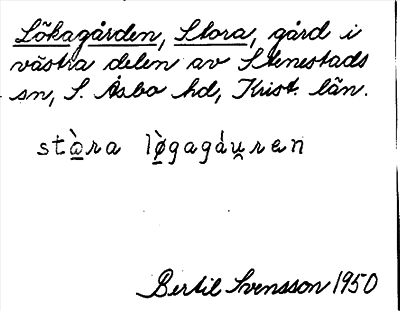 Lökagården, Stora, gård i
västra delen av Stenestads
sn, S. Åsbo hd, Krist. län.
stὰ̱ra lø̱̀gagáu̯ren
Bertil Svensson 1950